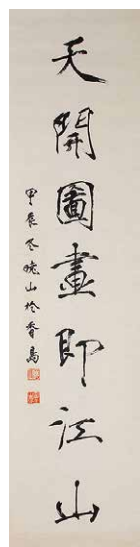 天開圖畫即江山
甲辰冬曉山於香島